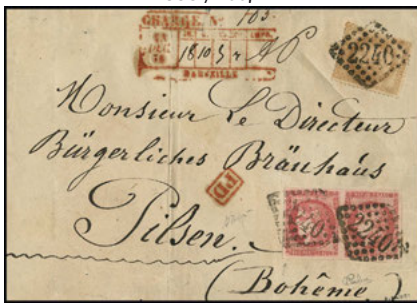 CHARGÉ. N° 103
MARSEILLE
2240
Monsieur Le Directeur
Bürgerliches Bräuhaus
PD
Pilsen.
2240
(Bohême)